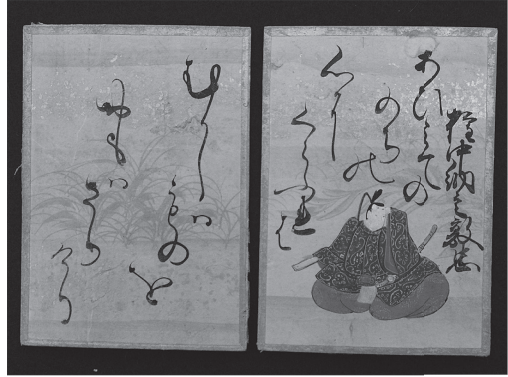 権中納言敦忠
あひみての
のちの
心に
くらふれは
むかしは
ものを
おもは
さり
けり